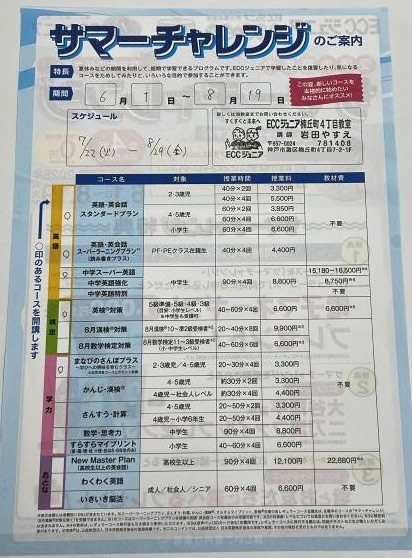 サマーチャレンジのご案内
特長
夏休みなどの期間を利用して、短期で学習できるプログラムです。ECCジュニアで学習したことを復習したり、気になる
コースをためしてみたりと、いろいろな目的で参加することができます。
期間 6月1日～8月19日
この夏、新しいコースを
本格的に始めたい
みなさんにオススメ!
スケジュール
7/22(火) － 8/29(金)
詳しくは当教室までお問い合わせください。
すくすくと未来へ
ECCジュニア
ECCジュニア楠丘町4丁目教室
講師 岩田やすえ
〒657-0024 781408
神戸市灘区楠丘町4丁目7-2-1F
○印のあるコースを開講します
コース名 対象 授業時間 授業料 教材費
英語
英語・英会話
スタンダードプラン
2・3歳児 40分×2回 3,300円
40分×4回 5,500円
4・5歳児 60分×2回 3,850円
60分×4回 6,600円
小学生 60分×4回 6,600円
不要
英語・英会話
スーパーラーニングプラン
(読み書きプラス)
PF・PEクラス在籍生 40分×4回 4,400円
中学スーパー英語 15,180～16,500円
中学英語強化 中学生 90分×4回 8,800円 8,750円
中学英語特別 不要
検定
英検対策
5級準備・5級・4級・3級
40～60分×4回 6,600円 6,600円
8月漢検対策 20～40分×8回 9,900円
8月数学検定対策 40～60分×6回 6,600円
学力
まなびのさんぽプラス 2・3歳児/4・5歳児 20～30分×4回 3,300円
かんじ・漢検
4・5歳児 約30分×2回 3,300円
4歳児～社会人レベル 約30分×4回 4,400円
さんすう・計算
4・5歳児 20～50分×2回 3,300円
4歳児～小学6年生 20～50分×4回 4,400円
数学・思考力 中学生 90分×4回 8,800円
すらすらマイプリント 小学生 40～60分×4回 6,600円
不要
おとな
New Master Plan
(高校生以上の英会話)
高校生以上 90分×4回 12,100円 22,880円
わくわく英語
いきいき脳活
成人/社会人/シニア 60分×4回 6,600円 不要